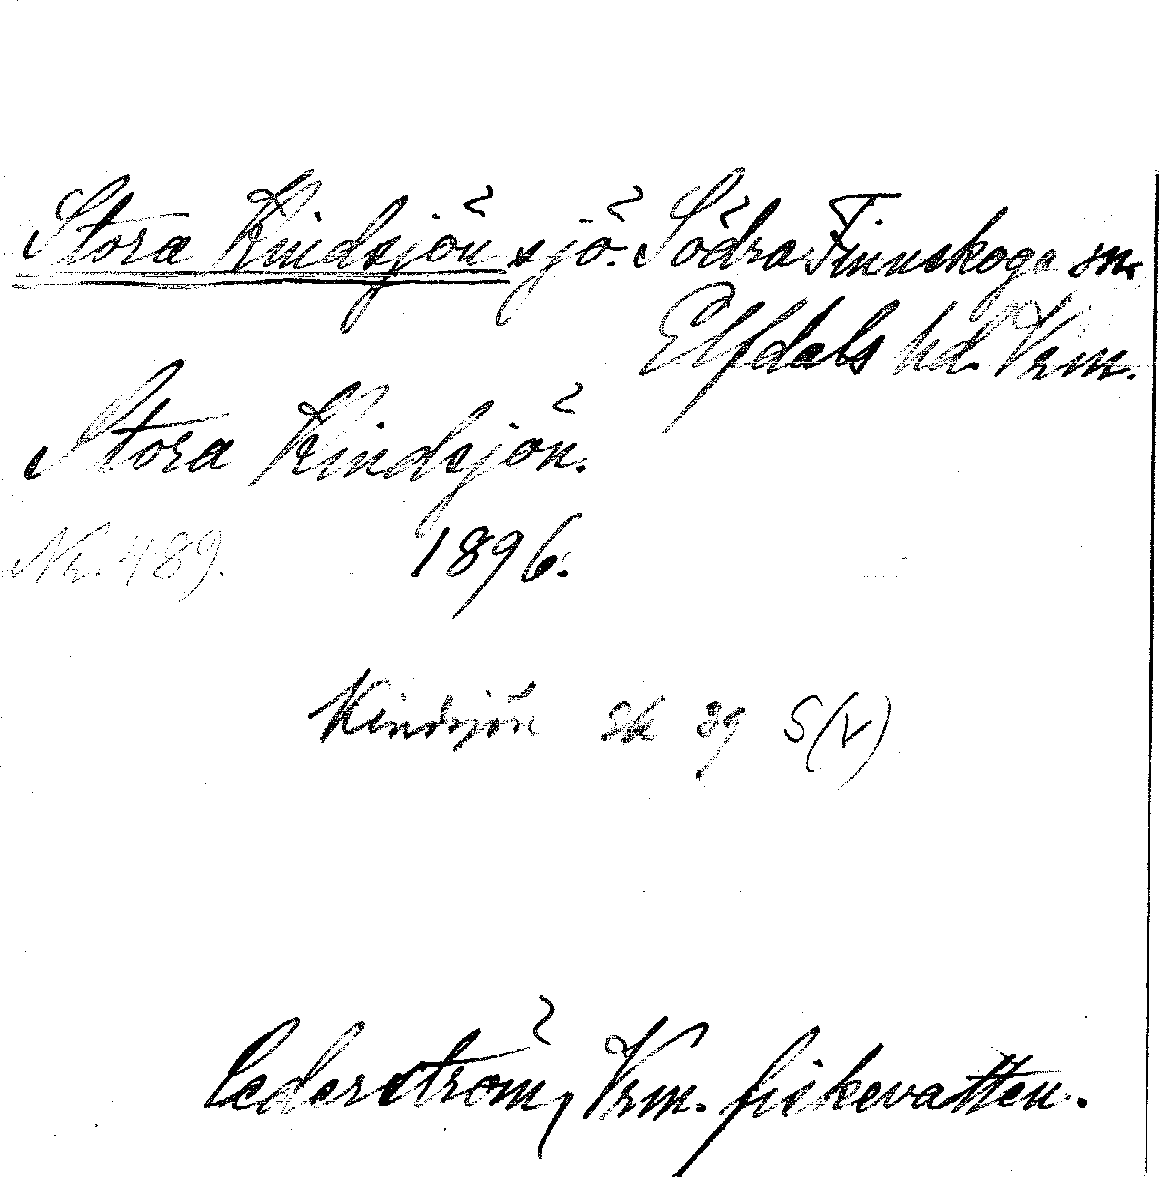 Stora Kindsjön sjö. Södra Finnskoga sn.
Elfdals hd. Vrm.
Stora Kindsjön.
Nr. 489. 1896.
Kindsjön sk 39 S(V)
Cederström, Vrm. fiskevatten.